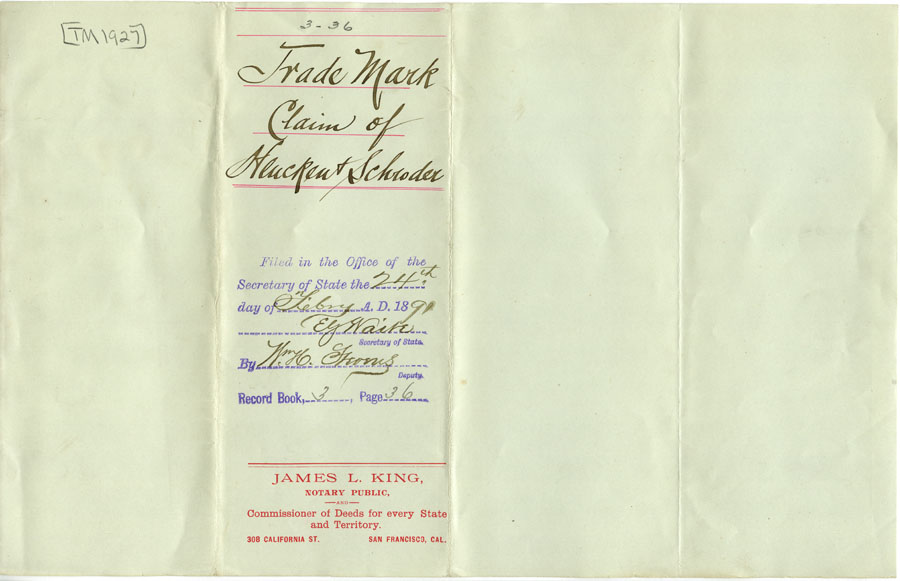 [TM1927]
3-36
Trade Mark
Claim of
Hencken & Schroder
Filed in the Office of the
Secretary of State the 24th
day of Febry A. D. 1891
E G Waite
Secretary of State.
By Wm H.
Deputy.
Record Book, 3, Page 36
JAMES L. KING,
NOTARY PUBLIC,
AND
Commissioner of Deeds for every State
and Territory.
308 CALIFORNIA ST. SAN FRANCISCO, CAL.